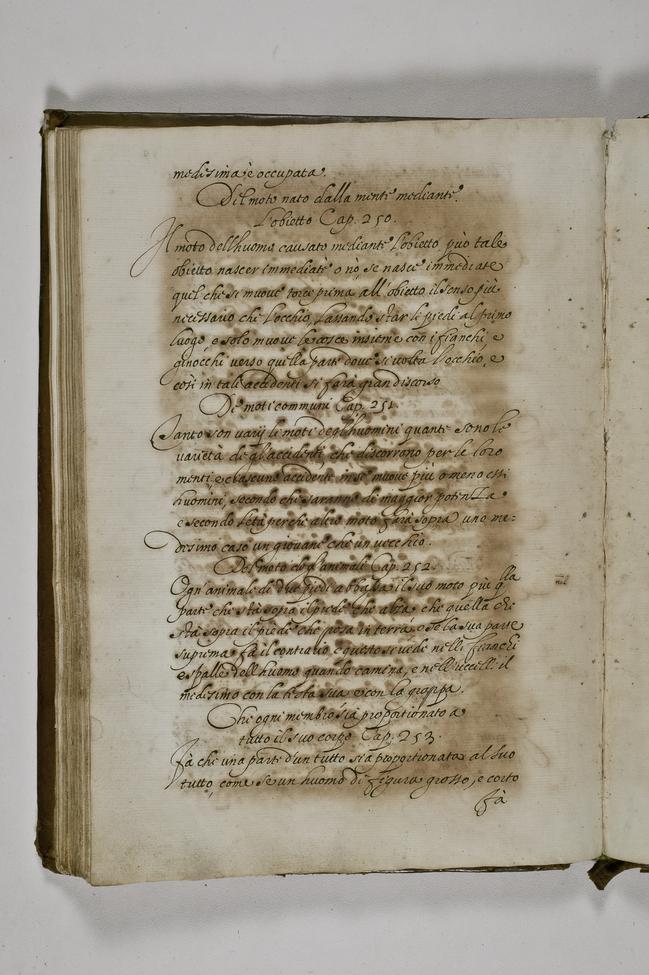 medesima è occupata.
Del moto nato dalla mente mediante
l'obietto Cap. 250.
Il moto dell'huomo causato mediante l'obietto, può tale
obietto nascer immediate o nò, se nasce immediate
quel che si muove torce prima all'obietto il senso più
necessario che l'occhio, lassando star li piedi al primo
luogo, e solo muove le cosce insieme con i fianchi, e
ginocchi verso quella parte dove si volta l'occhio, e
così in tali accidenti si farà gran discorso
De moti communi Cap. 251.
Tanto son varij li moti degl'huomini quante sono le
varietà de gl'accidenti, che discorrono per le loro
menti, e ciascuno accidente in se muove più o meno essi
huomini, secondo che saranno di maggior potenza
e secondo l'età perche altro moto farà sopra uno me=
desimo caso un giovane che un vecchio.
Del moto degl'animali Cap. 252.
Ogn'animale di due piedi abbassa il suo moto più q.lla
parte che stà sopra il piede che alza, che quella che
stà sopra il piede che posa in terra, e se la sua parte
suprema fà il contrario, e questo si vede nelli fianchi
e spalle dell'huomo quando camina, e nell'uccelli il
medesimo con la testa sua e con la groppa.
Che ogni membro sia proportionato a
tutto il suo corpo Cap. 253.
Fà che una parte d'un tutto sia proportionata al suo
tutto, come se un huomo di figura grosso, e corto
fà